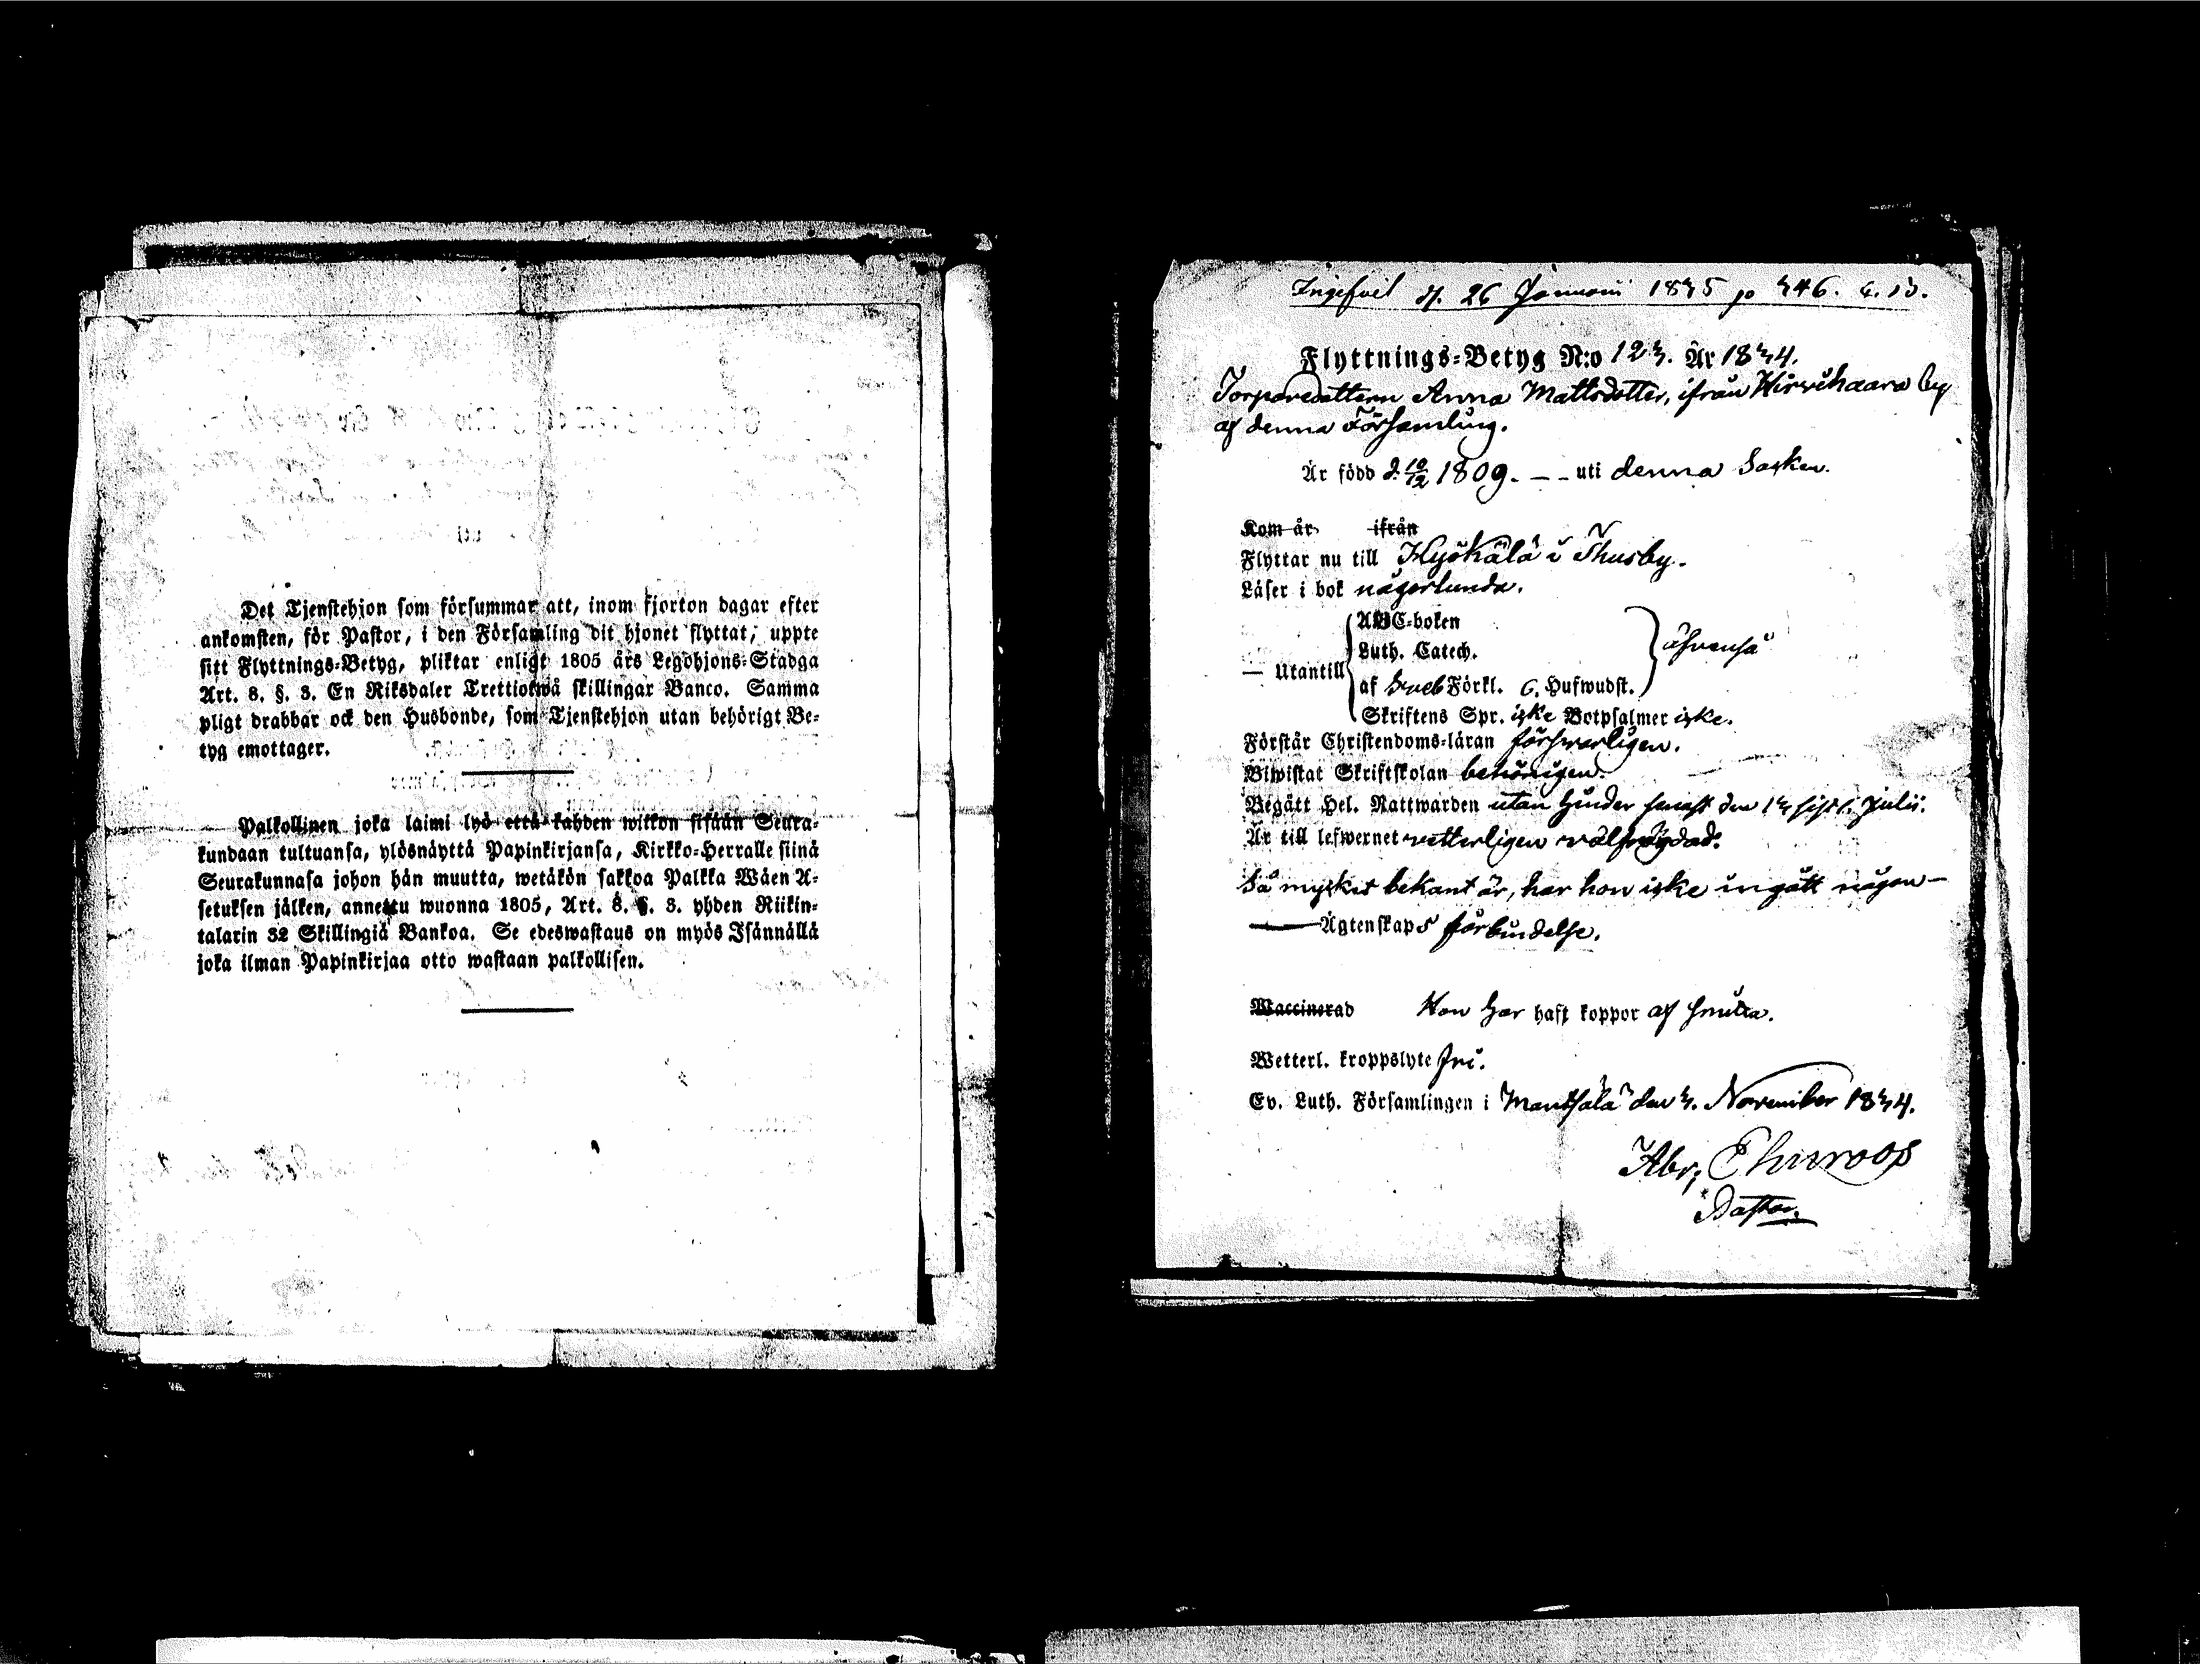 Det Tjenstehjon som försummar att, inom fjorton dagar efter
ankomsten, för Pastor, i den Församling dit hjonet flyttat, uppte
sitt Flyttnings-Betyg, pliktar enligt 1805 års Legohjons-Stadga
Art. 8. §. 3. En Riksdaler Trettiotwå skillingar Banco. Samma
pligt drabbar ock den Husbonde, som Tjenstehjon utan behörigt Be-
tyg emottager.
Palkollinen joka laimi lyö että kahden wiikon sisään Seura-
kundaan tultuansa, ylösnäyttä Papinkirjansa, Kirkko-Herralle siinä
Seurakunnasa johon hän muutta, wetäkön sakkoa Palkka Wäen A-
setuksen jälken, annettu wuonna 1805, Art. 8. §. 3. yhden Riikin-
talarin 32 Skillingiä Bankoa. Se edeswastaus on myös Isännällä
joka ilman Papinkirjaa otto wastaan palkollisen.
d. 26 Januari 1835 p 346.
Flyttnings-Betyg N:o 123. År 1834.
Torparedottern Anna Mattsdotter, ifrån Hirvihaara by
af denna Församling.
Är född d. 10/12 1809. -- uti denna Socken.
Kom år ifrån
Flyttar nu till Hyökälä i Thusby.
Läser i bok någorlunda.
ABC-boken
Luth. Catech.
— Utantill äfvenså
af Sveb Förkl. 6. Hufwudst.
Skriftens Spr. icke Botpsalmer icke.
Förstår Christendoms-läran försvarligen.
Biwistat Skriftskolan behörigen.
Begått Hel. Nattwarden utan hinder senast den 13 sistl. Julii.
Är till lefwernet vetterligen välfrägdad.
Så mycket bekant är, har hon icke ingått någon —
— Ägtenskaps förbindelse.
Waccinerad Hon har haft koppor af smitta.
Wetterl. kroppslyte fri.
Ev. Luth. Församlingen i Mäntsälä den 3. November 1834.
Abr:
Pastor.